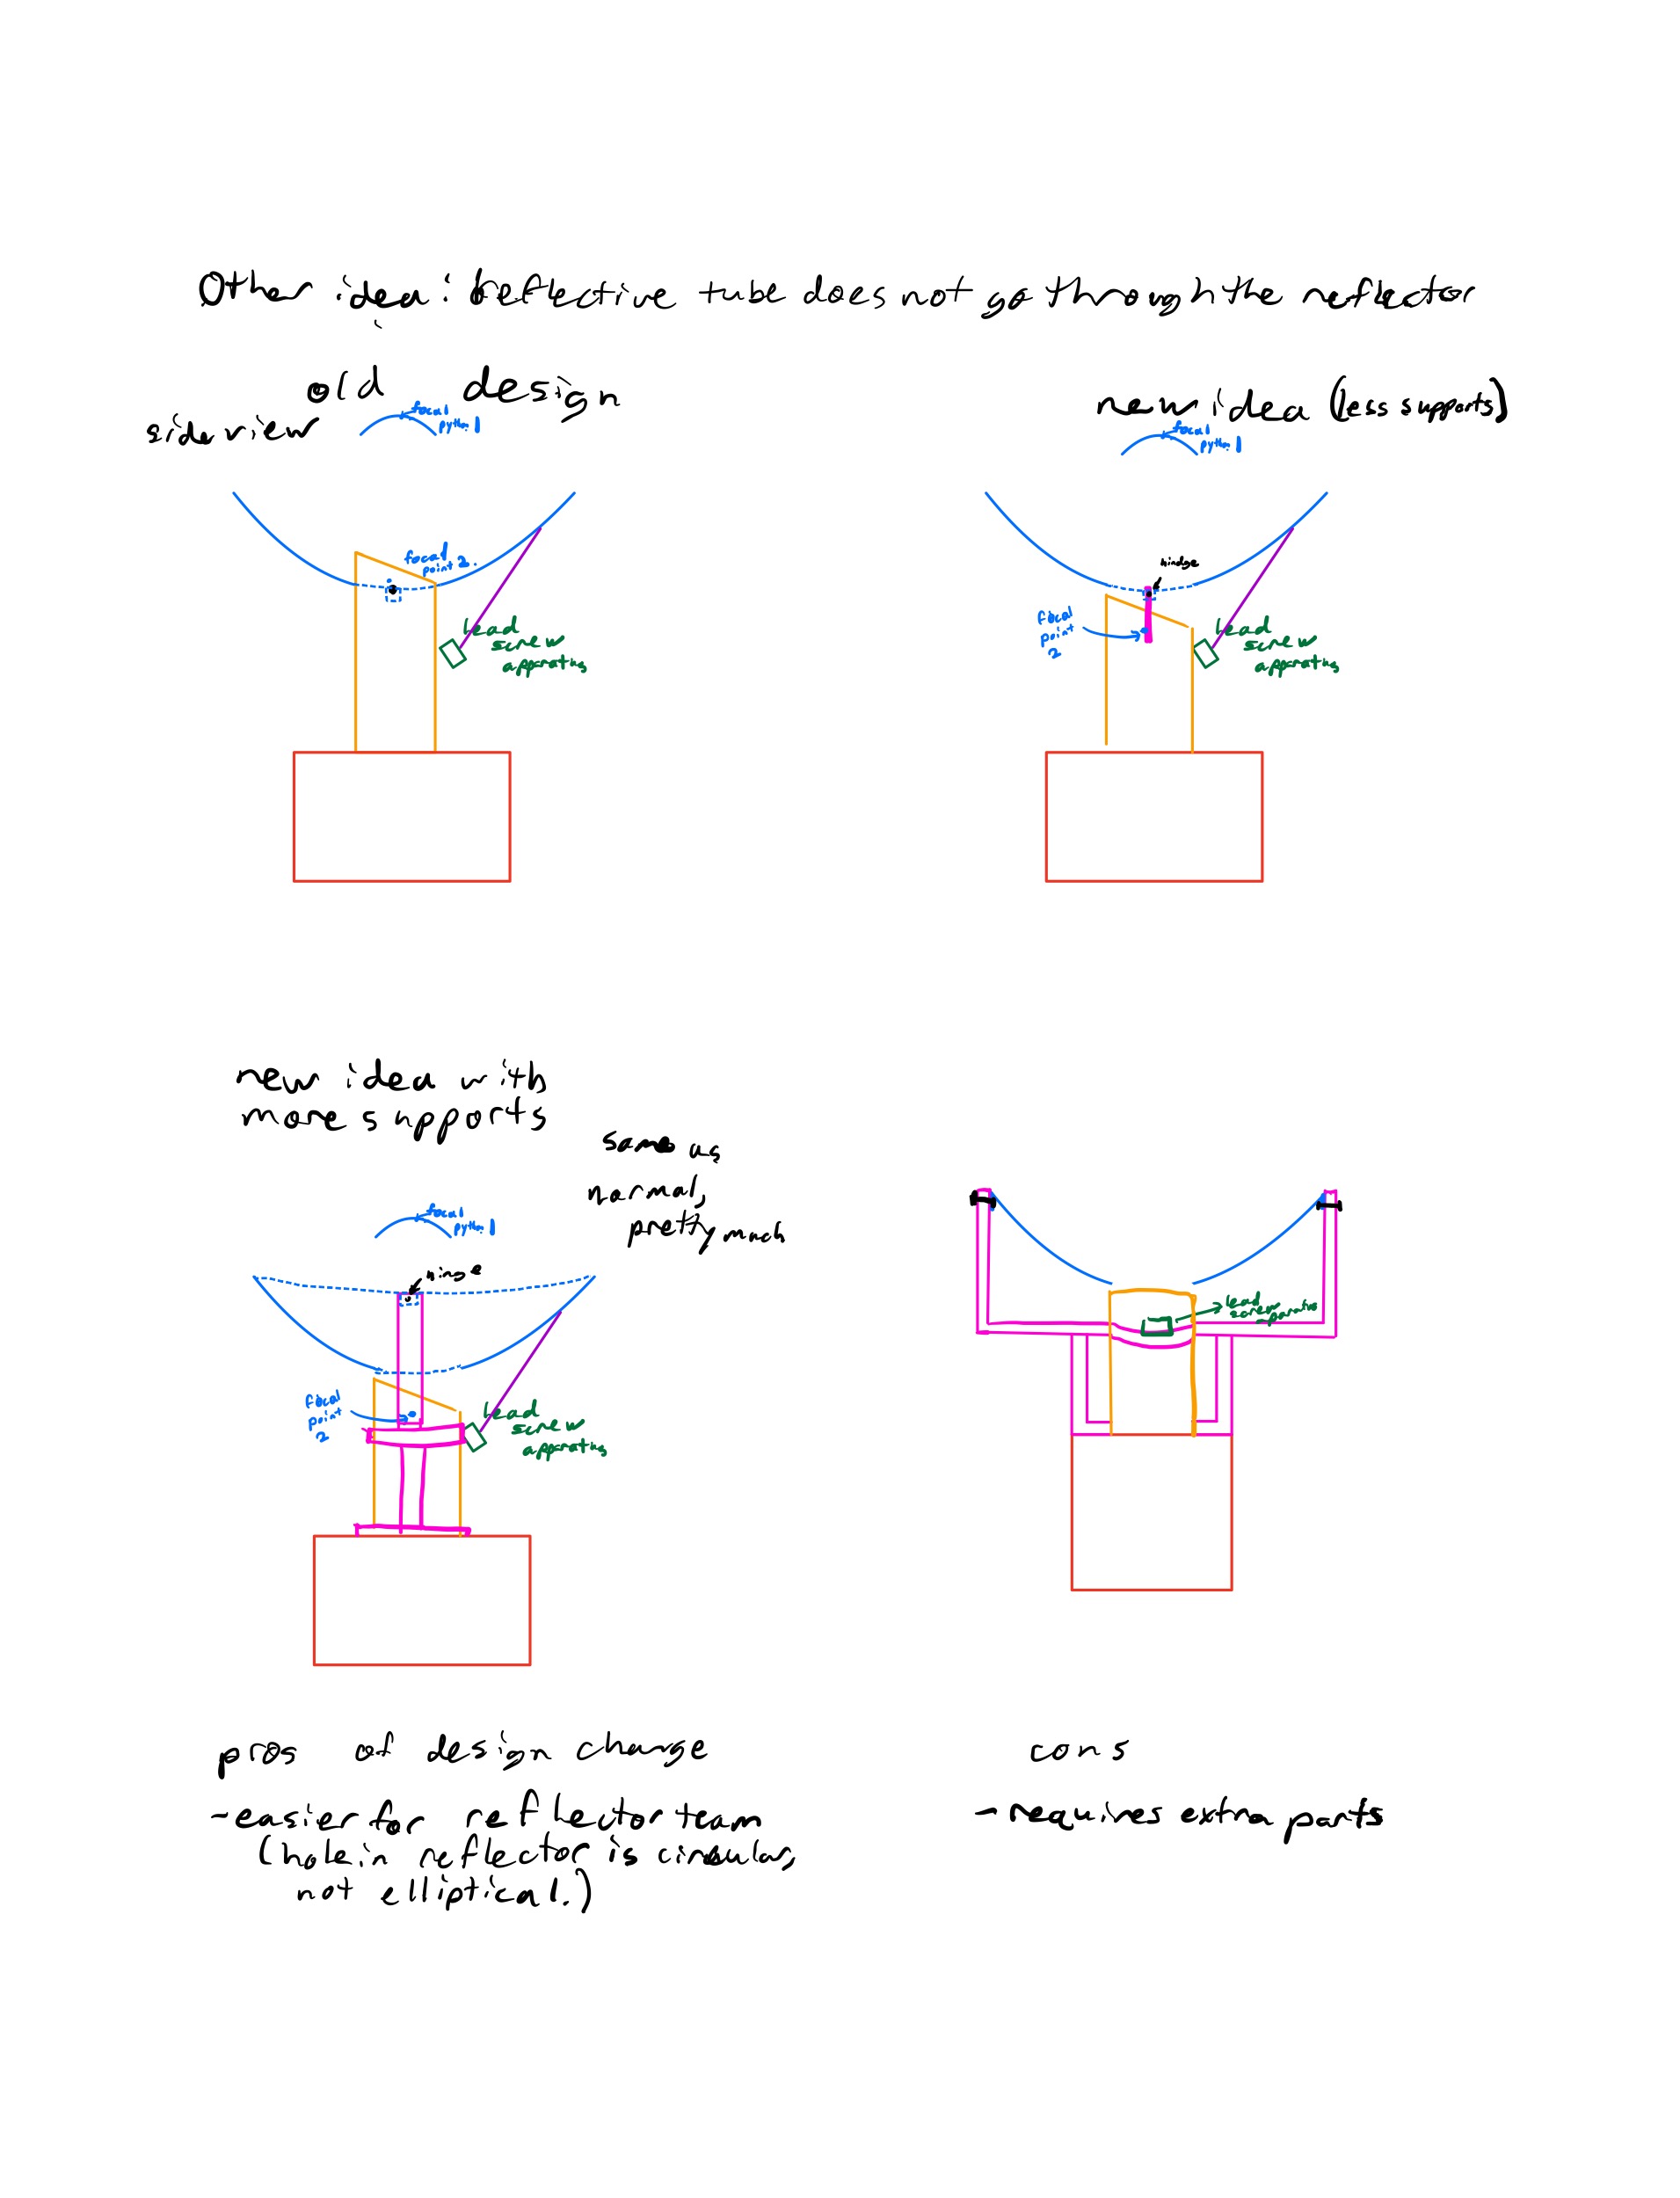 Other idea: Reflective tube does not go through the reflector
old design
side view
focal
python 1
focal
point 2.
lead
screw
apparatus
new idea (less supports)
focal
python 1
hindge
focal
point
2
lead
screw
apparatus
new idea with
more supports
same as
normal,
pretty much
focal
python 1
hinge
focal
point
2
lead
screw
apparatus
lead
screw
apparatus
pros of design change
-easier for reflector team
(hole in reflector is circular,
not elliptical.)
cons
-requires extra parts